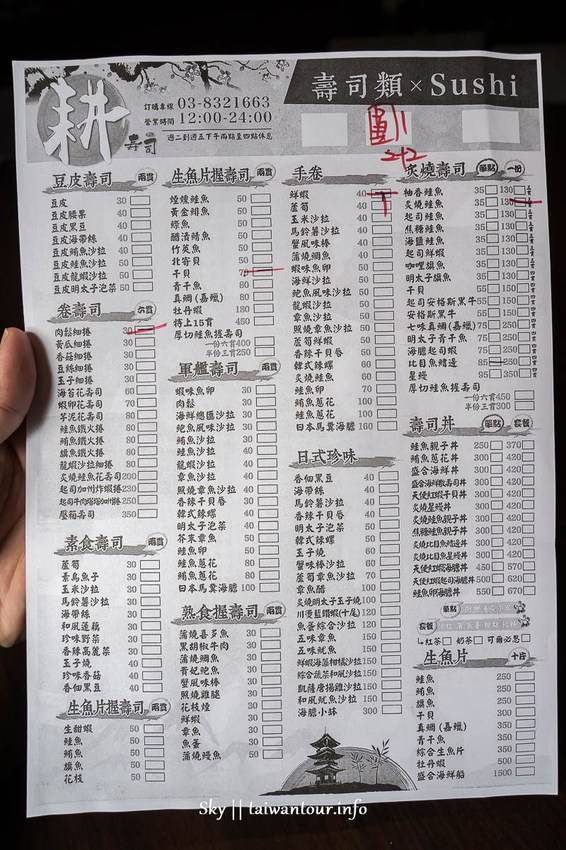 耕
壽司
訂購專線 03-8321663
營業時間 12:00-24:00
週二到週五下午兩點至四點休息
壽司類×Sushi
豆皮壽司 兩貫
豆皮 30
豆皮腰果 40
豆皮黑豆 40
豆皮海帶絲 40
豆皮鮪魚沙拉 50
豆皮鮭魚沙拉 50
豆皮龍蝦沙拉 50
豆皮明太子泡菜 50
卷壽司 六貫
肉鬆細捲 30
黃瓜細捲 30
香菇細捲 30
豆絲細捲 30
玉子細捲 40
海苔花壽司 60
蝦卵花壽司 70
芊泥花壽司 80
鮭魚鐵火捲 80
鮪魚鐵火捲 80
旗魚鐵火捲 80
龍蝦沙拉細捲 80
炙燒鮭魚花壽司 200
起司加州炸蝦捲 230
起司牛肉塔塔加州捲 250
壓箱壽司 350
素食壽司 兩貫
蘆筍 30
青鳥魚子 30
玉米沙拉 30
馬鈴薯沙拉 30
海帶絲 30
和風蓮藕 30
珍味野菜 30
香辣高麗菜 30
玉子燒 30
珍味香菇 30
香佃黑豆 30
生魚片握壽司 兩貫
生甜蝦 50
鮭魚 50
鮪魚 50
旗魚 50
花枝 50
生魚片握壽司 兩貫
煙燻鮭魚 50
黃金緋魚 50
鰶魚 50
醋漬鯖魚 50
竹筴魚 50
北寄貝 50
干貝 70
青干魚 80
真鯛(嘉蠟) 80
牡丹蝦 180
特上15貫 450
厚切鮭魚握壽司
一份六貫400
半份三貫250
軍艦壽司 兩貫
蝦味魚卵 40
肉鬆 40
海鮮總匯沙拉 40
鮀魚風味沙拉 40
鮪魚沙拉 40
鮭魚沙拉 40
龍蝦沙拉 40
章魚沙拉 40
照燒章魚沙拉 40
香辣干貝唇 40
韓式辣螺 40
明太子泡菜 40
芥末章魚 50
鮭魚卵 50
鮭魚蔥花 80
鮪魚蔥花 80
日本馬糞海膽 100
熟食握壽司 兩貫
蒲燒喜多魚 30
黑胡椒牛肉 30
蒲燒鯛魚 30
貴妃鮀魚 30
蟹風味棒 30
照燒雞腿 30
花枝燈 30
鮮蝦 30
章魚 30
魚薈 30
蒲燒鰻魚 50
手卷
鮮蝦 40
蘆筍 40
玉米沙拉 40
馬鈴薯沙拉 40
蟹風味棒 40
蒲燒鯛魚 40
蝦味魚卵 40
海鮮沙拉 50
鮀魚風味沙拉 50
龍蝦沙拉 50
章魚沙拉 50
照燒章魚沙拉 50
蘆筍鮮蝦 60
香辣干貝唇 60
韓式辣螺 60
炙燒鮭魚 60
鮭魚卵 100
鮪魚蔥花 100
鮭魚蔥花 100
日本馬糞海膽 160
日式珍味
香佃黑豆 40
海帶絲 40
馬鈴薯沙拉 40
香辣干貝唇 40
明太子泡菜 40
韓式辣螺 60
玉子燒 60
蟹味棒沙拉 60
蘆筍章魚沙拉 60
章魚醋 60
炙燒明太子玉子燒 100
川燙藍鑽蝦(十尾) 120
魚薈綜合沙拉 120
五味章魚 150
五味魷魚 150
鮮蝦海菜柑橘沙拉 150
綜合蔬菜和風沙拉 150
凱薩唐揚雞沙拉 150
和風魷魚沙拉 160
海膽小缽 300
炙燒壽司 單點 一份
柚香鮭魚 35 130
炙燒鮭魚 35 130
起司鮭魚 35 130
焦糖鮭魚 35 130
海鹽鮭魚 35 130
起司鮮蝦 35 130
咖哩旗魚 35 130
明太子旗魚 35 130
起司安格斯黑牛 55 150
安格斯黑牛 55 150
七味真鯛(嘉蠟) 75 250
明太子青干魚 75 250
海膽起司蝦 75 250
比目魚鰭邊 85 250
星鰻 95 300
厚切鮭魚握壽司
一份六貫450
半份三貫300
壽司丼 單點 套餐
鮭魚親子丼 250 370
鮪魚蔥花丼 300 420
盛合海鮮丼 300 420
盛合海鮮散壽司丼 300 420
天使紅蝦干貝丼 300 420
炙燒星鰻丼 300 420
炙燒鮭魚親子丼 300 420
焦糖鮭魚親子丼 300 420
炙燒比目魚鰭邊丼 300 420
炙燒比目魚星鰻丼 300 420
天使紅蝦海膽丼 450 570
天使紅蝦起司海膽丼 500 620
鮭魚卵海膽丼 550 670
單點
套餐
紅茶 奶茶 可爾必思
生魚片 十片
鮭魚 250
鮪魚 250
旗魚 250
干貝 350
真鯛(嘉蠟) 350
青干魚 350
綜合生魚片 350
牡丹蝦 500
盛合海鮮船 1500
Sky || taiwantour.info